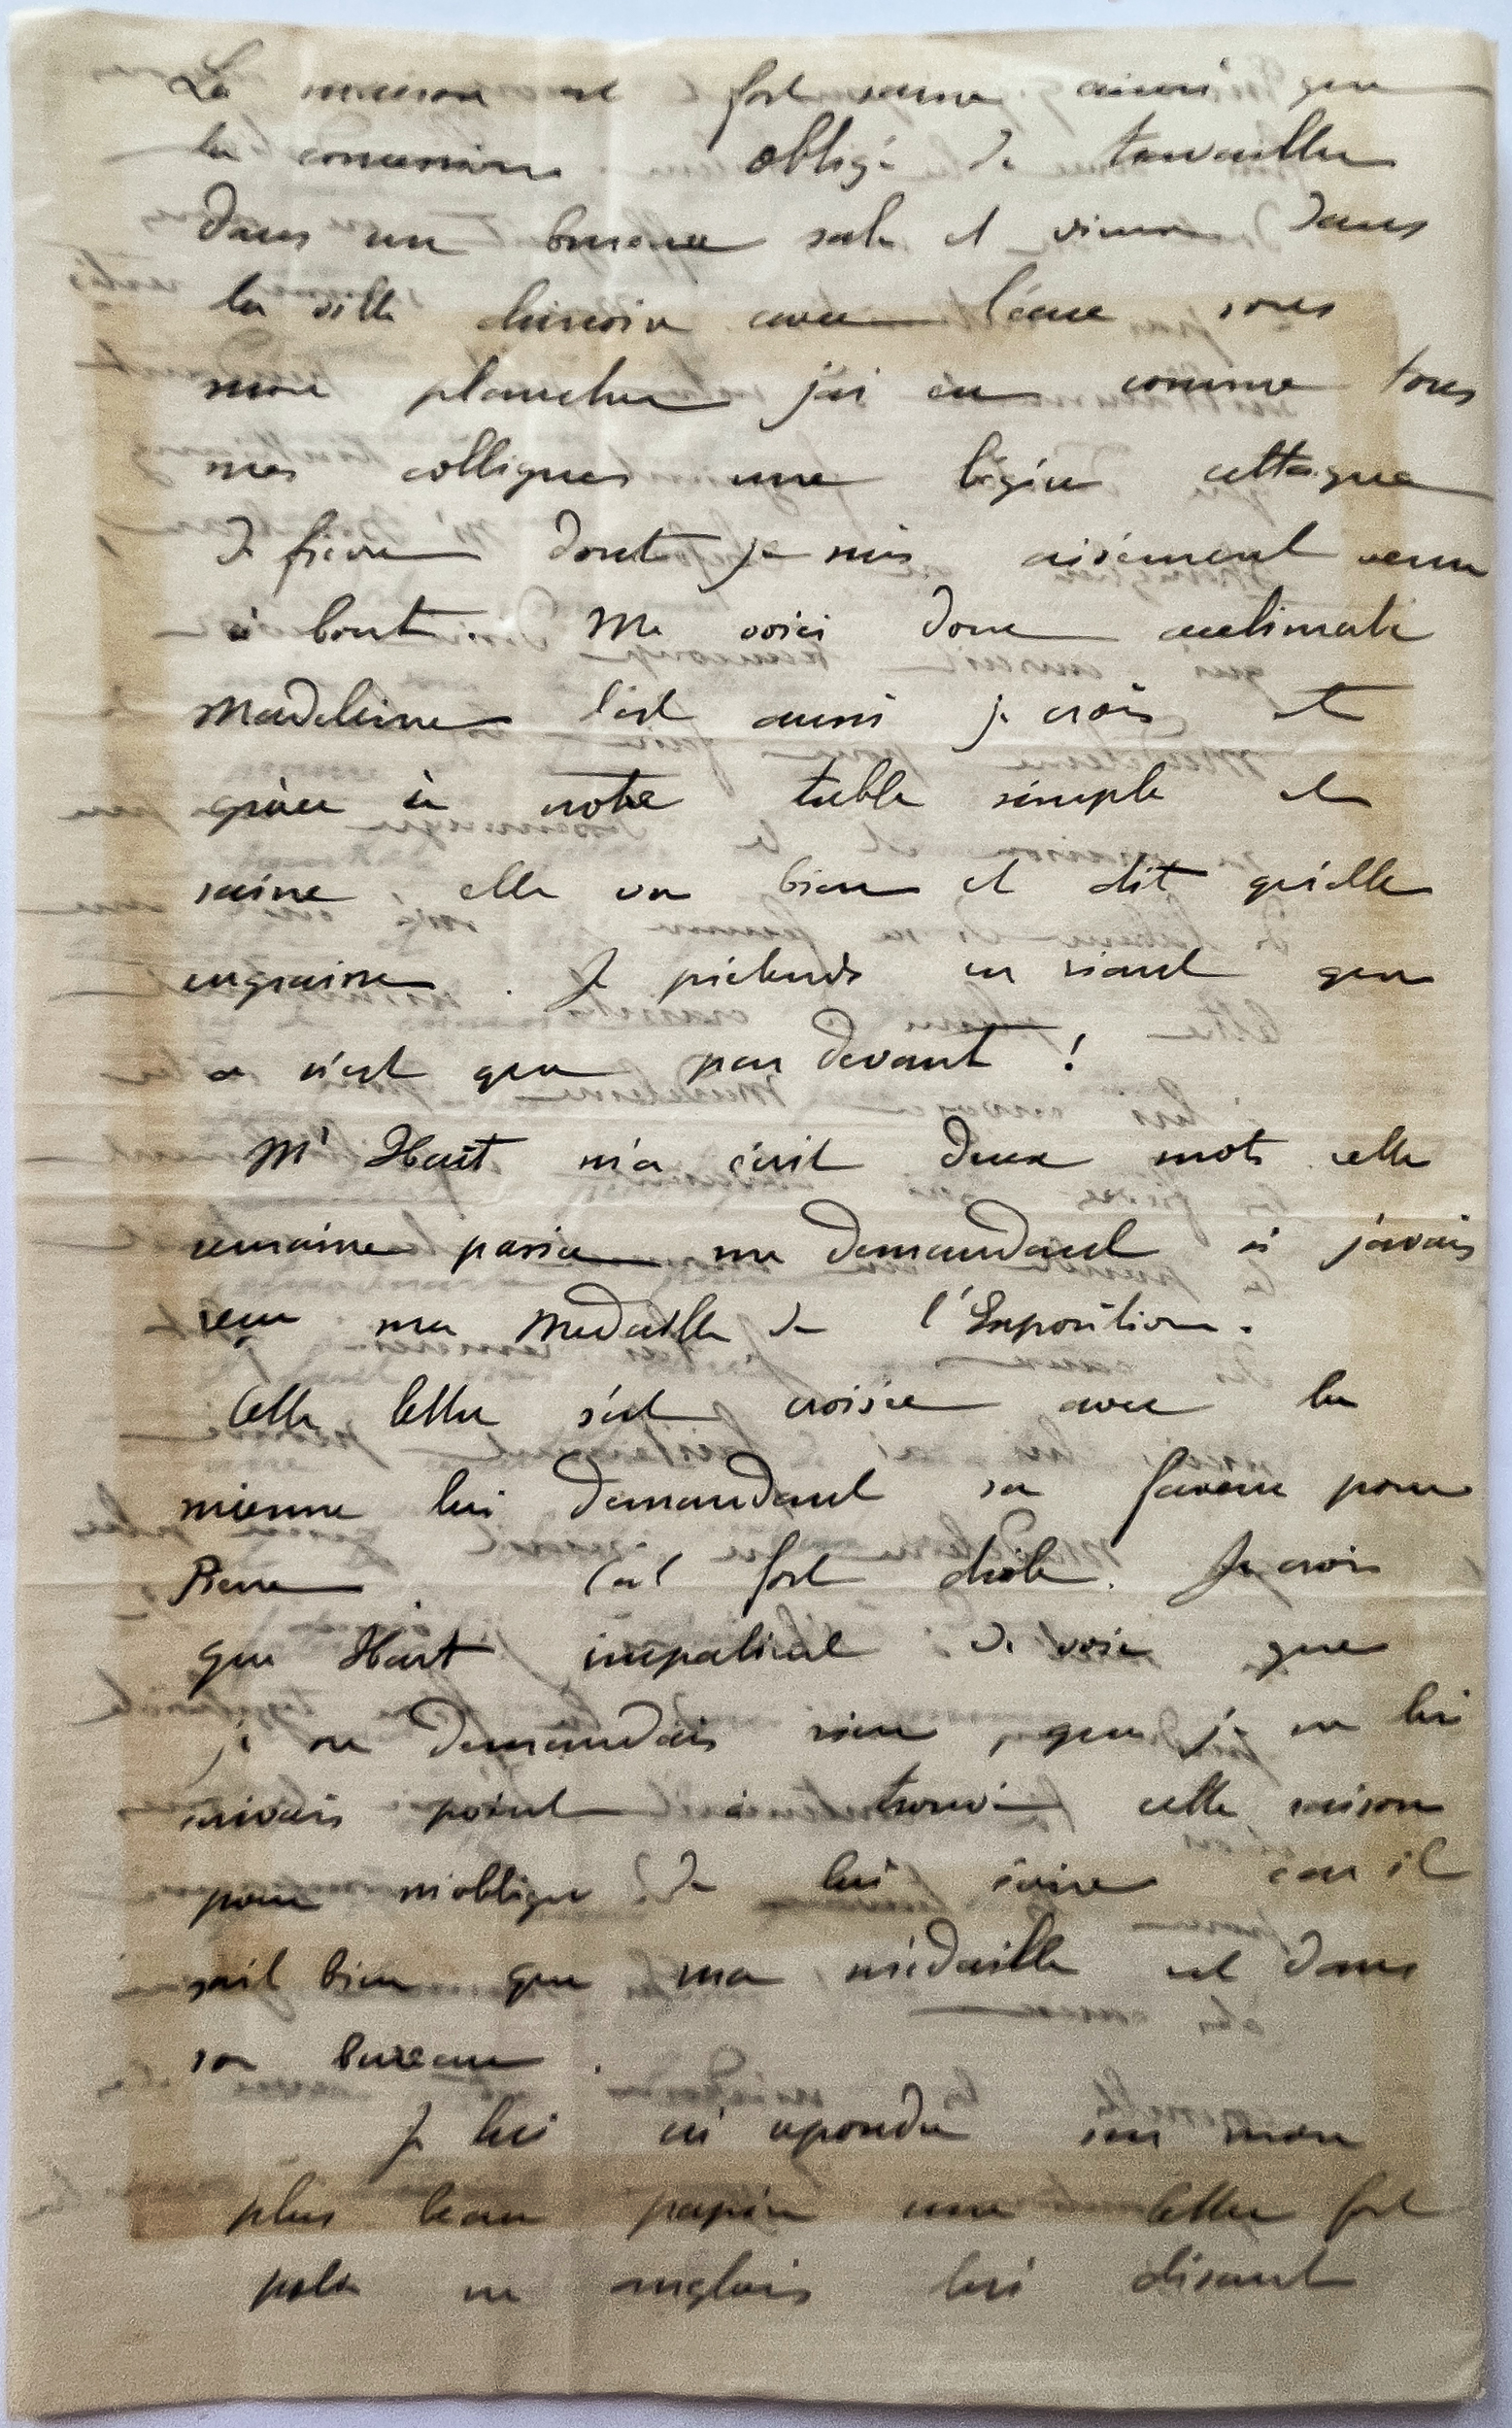 La maison est fort saine ainsi que
la concession obligé de travailler
dans un bureau sale et vieux dans
la ville chinoise avec l'eau sous
mon plancher j'ai eu comme tous
mes collègues une légère attaque
de fièvre dont je suis aisément venu
à bout. Me voici donc acclimaté
Madeleine l'est aussi je crois et
grâce à notre table simple et
saine, elle va bien et dit qu'elle
engraisse. Je prétends en riant que
ce n'est que par devant !
Mr Hart m'a écrit deux mots cette
semaine passée me demandant si j'avais
reçu ma médaille de l'Exposition.
Cette lettre s'est croisée avec la
mienne lui demandant sa faveur pour
Pierre. C'est fort drôle. Je crois
que Hart impatient de voir que
je ne demandais rien, que je ne lui
écrivais point a trouvé cette raison
pour m'obliger de lui écrire car il
sait bien que ma médaille est dans
son bureau.
Je lui ai répondu sur mon
plus beau papier une lettre fort
polie en anglais lui disant